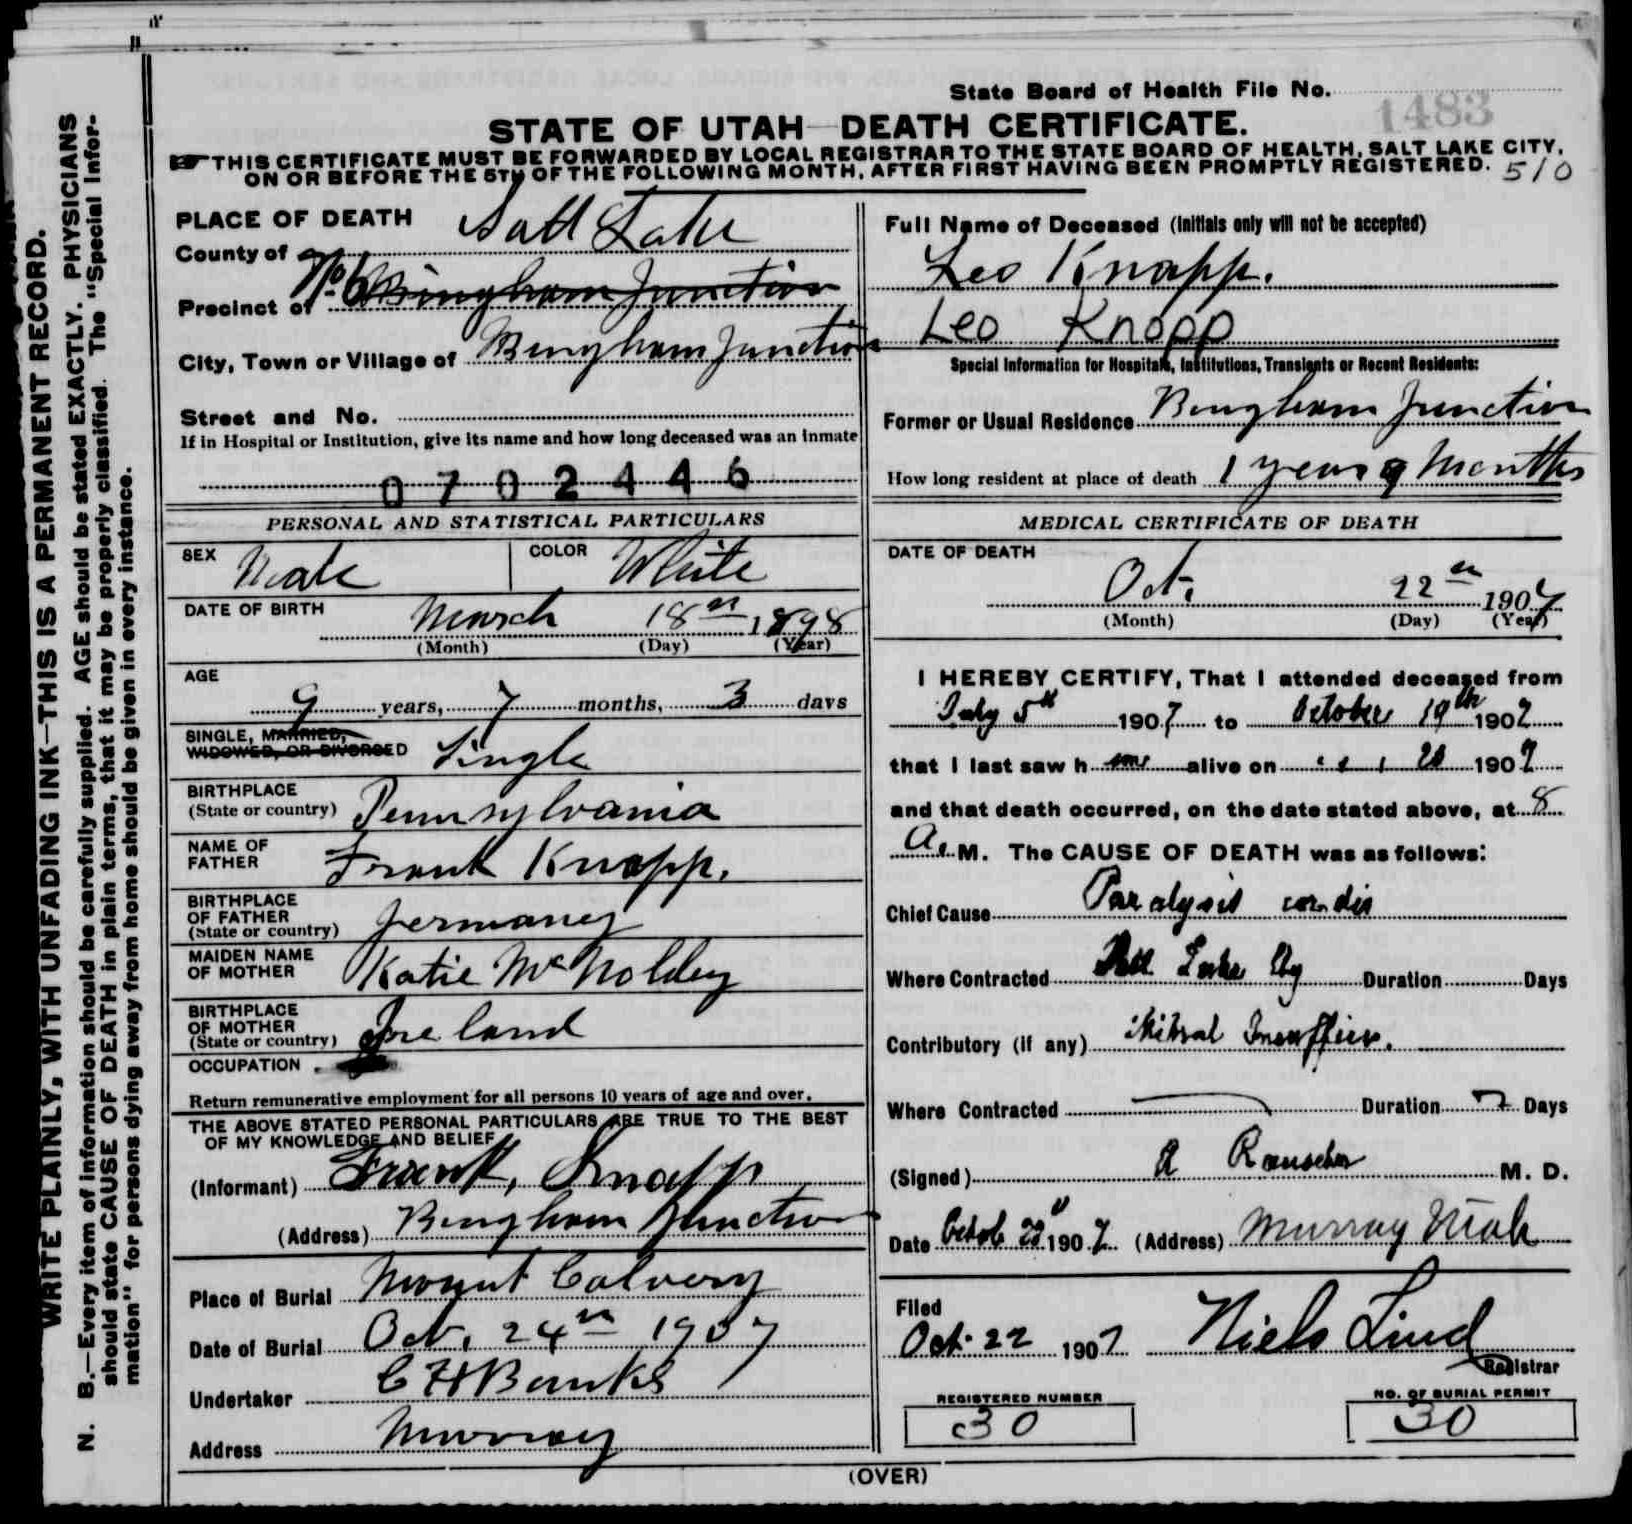 State Board of Health File No. 1483
STATE OF UTAH—DEATH CERTIFICATE.
THIS CERTIFICATE MUST BE FORWARDED BY LOCAL REGISTRAR TO THE STATE BOARD OF HEALTH, SALT LAKE CITY,
ON OR BEFORE THE 5TH OF THE FOLLOWING MONTH, AFTER FIRST HAVING BEEN PROMPTLY REGISTERED. 510
WRITE PLAINLY, WITH UNFADING INK—THIS IS A PERMANENT RECORD.
N. B.—Every item of information should be carefully supplied. AGE should be stated EXACTLY. PHYSICIANS
should state CAUSE OF DEATH in plain terms, that it may be properly classified. The "Special Infor-
mation" for persons dying away from home should be given in every instance.
PLACE OF DEATH
County of Salt Lake
Precinct of No. 6 Bingham Junction
City, Town or Village of Bingham Junction
Street and No.
If in Hospital or Institution, give its name and how long deceased was an inmate
0702446
PERSONAL AND STATISTICAL PARTICULARS
SEX Male COLOR White
DATE OF BIRTH March 18th 1898
(Month) (Day) (Year)
AGE
9 years, 7 months, 3 days
SINGLE, MARRIED,
WIDOWED, OR DIVORCED Single
BIRTHPLACE
(State or country) Pennsylvania
NAME OF
FATHER Frank Knapp.
BIRTHPLACE
OF FATHER
(State or country) Germaney
MAIDEN NAME
OF MOTHER Katie McNoldey
BIRTHPLACE
OF MOTHER
(State or country) Ireland
OCCUPATION
Return remunerative employment for all persons 10 years of age and over.
THE ABOVE STATED PERSONAL PARTICULARS ARE TRUE TO THE BEST
OF MY KNOWLEDGE AND BELIEF
(Informant) Frank, Knapp
(Address) Bingham Junction
Place of Burial Mount Calvery
Date of Burial Oct. 24th 1907
Undertaker C H Banks
Address Murray
Full Name of Deceased (Initials only will not be accepted)
Leo Knapp.
Leo Knapp
Special Information for Hospitals, Institutions, Transients or Recent Residents:
Former or Usual Residence Bingham Junction
How long resident at place of death 1 year 9 Months
MEDICAL CERTIFICATE OF DEATH
DATE OF DEATH
Oct. 22 1907
(Month) (Day) (Year)
I HEREBY CERTIFY, That I attended deceased from
July 5th 1907 to October 19th 1907
that I last saw h im alive on 20 1907
and that death occurred, on the date stated above, at 8
A. M. The CAUSE OF DEATH was as follows:
Chief Cause Paralysis cordis
Where Contracted Salt Lake Cty Duration Days
Contributory (if any) Mitral Insufficien.
Where Contracted Duration Days
(Signed) A Rauscher M. D.
Date Octob 22 1907 (Address) Murray Utah
Filed
Oct. 22 1907 Niels Lind
Registrar
REGISTERED NUMBER NO. OF BURIAL PERMIT
30 30
(OVER)